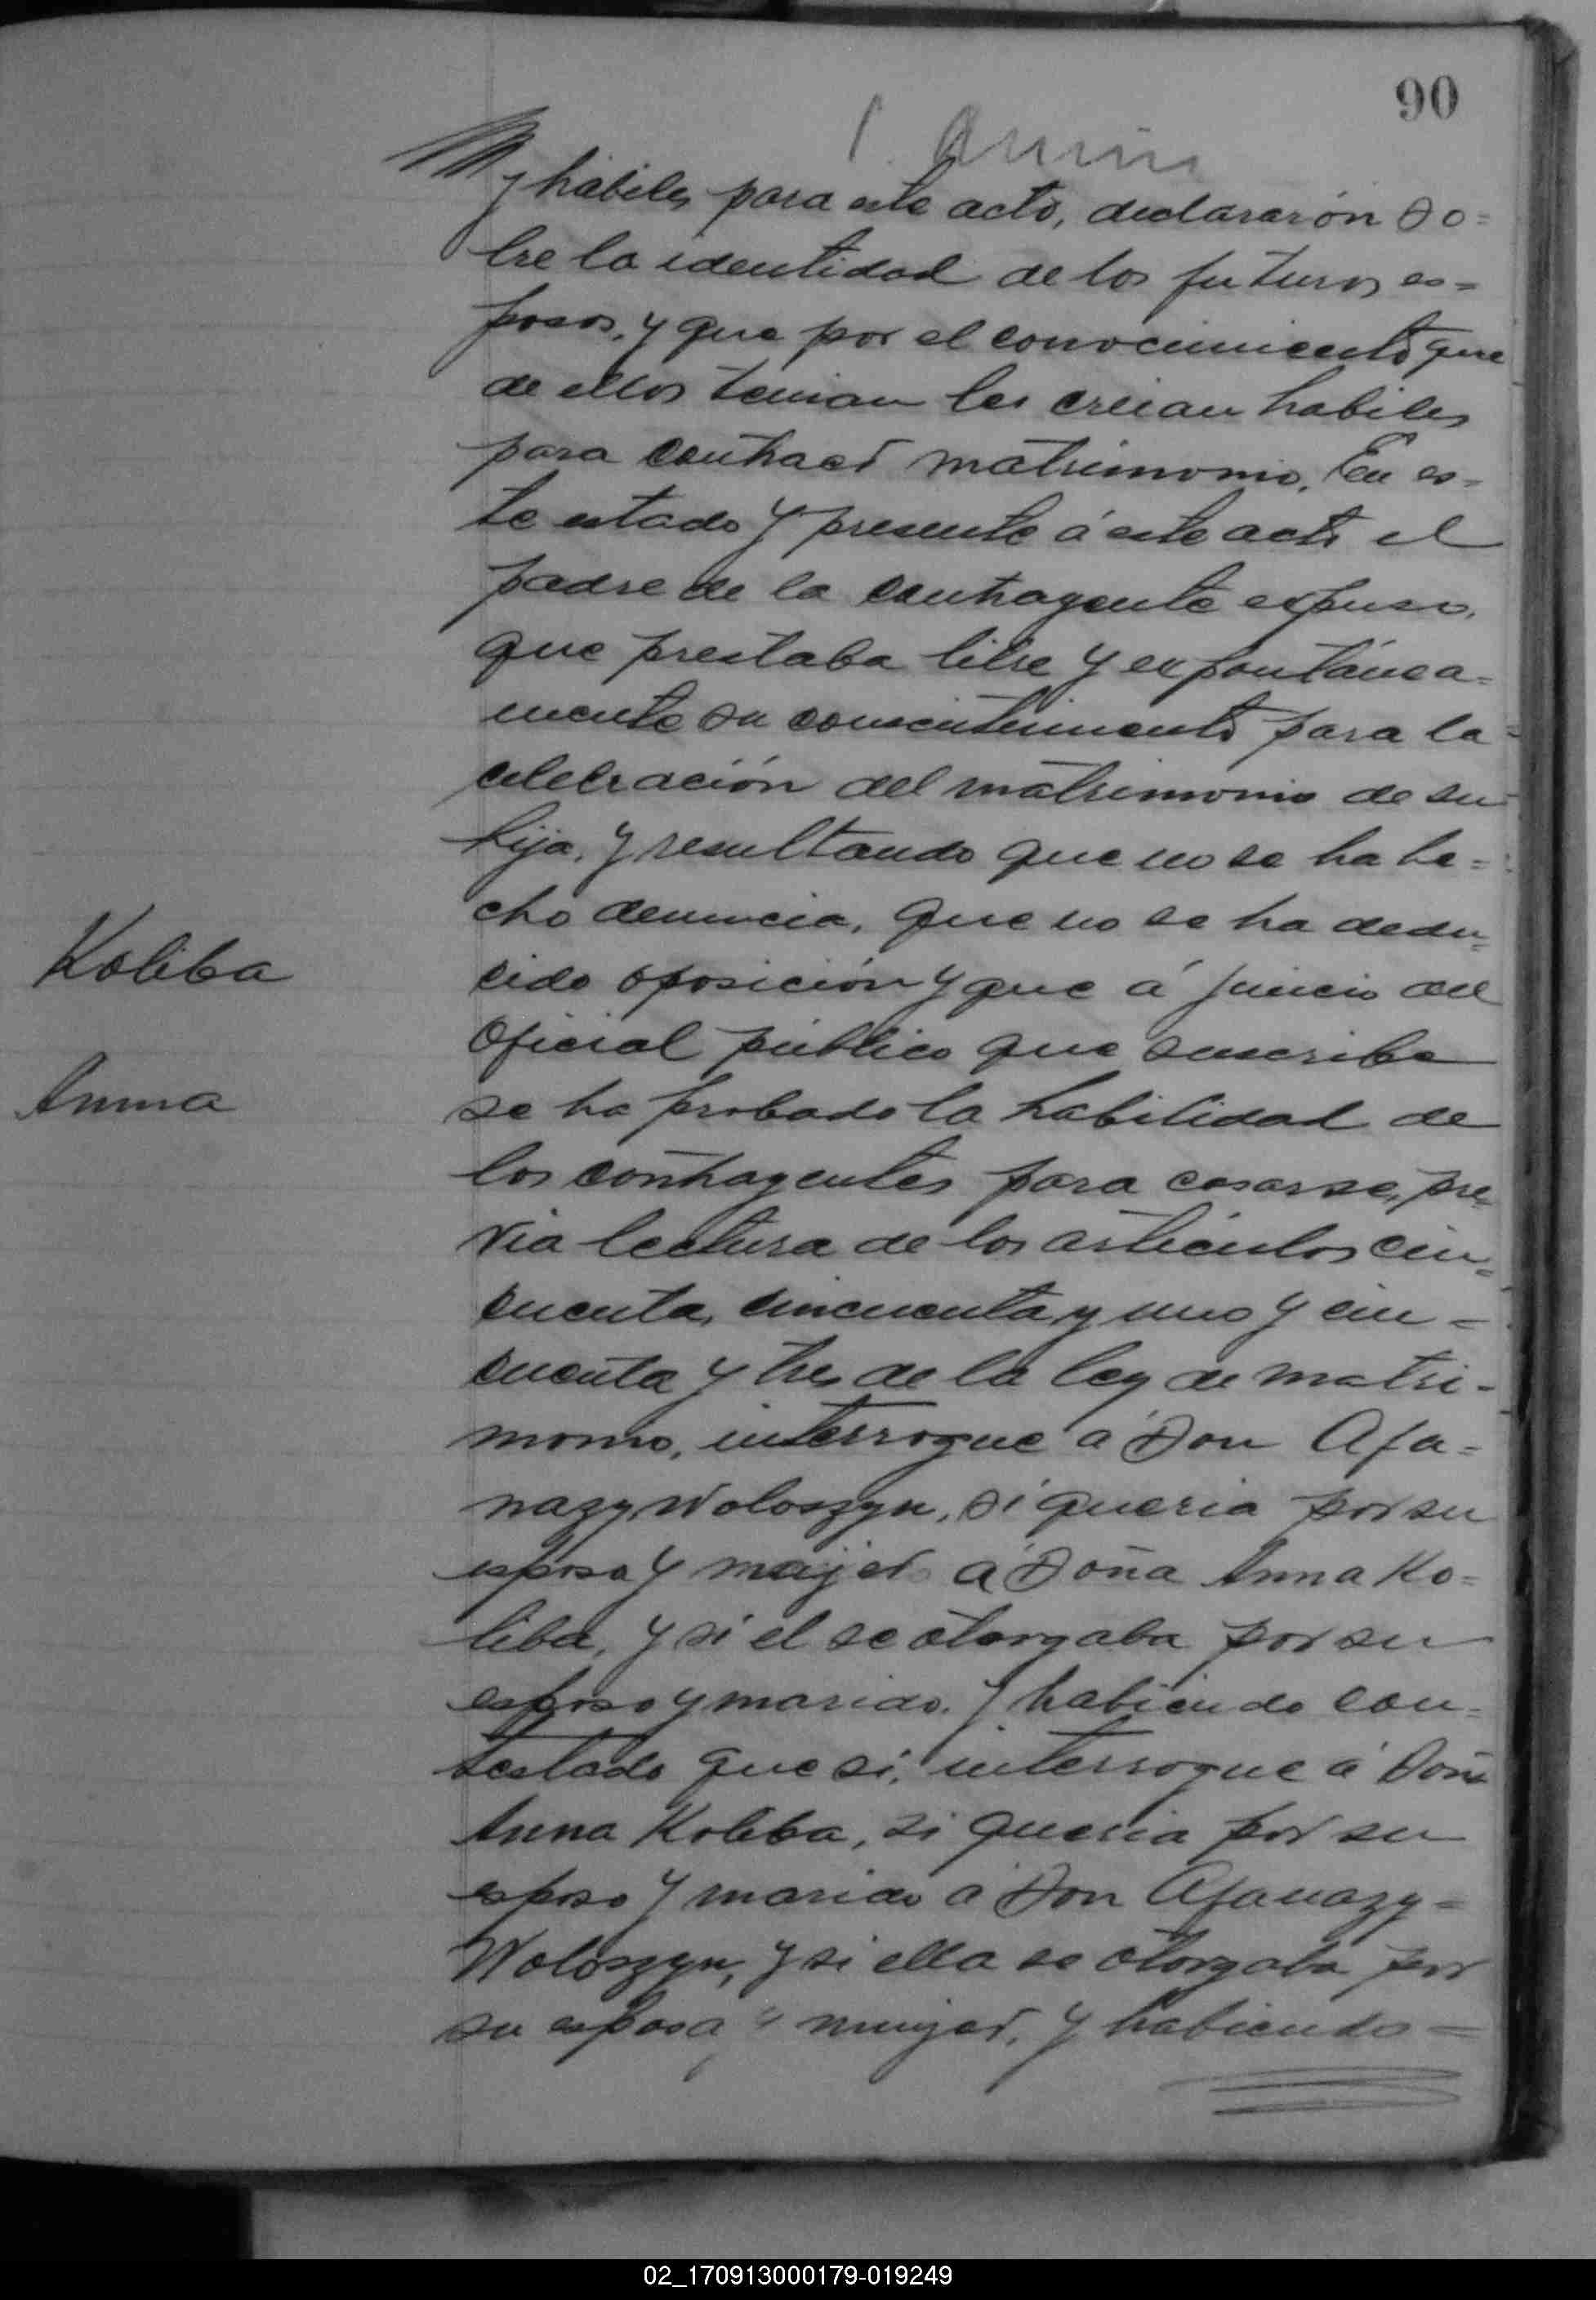 90
y hábiles para este acto, declararón so=
bre la identidad de los futuros es=
posos, y que por el conocimiento que
de ellos tenian les creian habiles
para contraer matrimonio. En es=
te estado y presente á este acto el
padre de la contrayente expuso,
que prestaba libre y expontánea=
mente su consentimiento para la
celebración del matrimonio de su
hija, y resultando que no se ha he=
cho denuncia, que no se ha dedu=
Koliba
cido oposición y que á juicio del
Oficial público que suscribe
Anna
se ha probado la habilidad de
los contrayentes para casarse, pre=
via lectura de los artículos cin=
cuenta, cincuenta y uno y cin=
cuenta y tres de la ley de matri=
monio, interrogue á Don Afa=
nazy Woloszyn, si queria por su
esposa y mujer á Doña Anna Ko=
liba, y si el se otorgaba por su
esposo y marido. y habiendo con=
testado que si, interrogue á Doña
Anna Koliba, si queria por su
esposo y marido á Don Afanazy=
Woloszyn, y si ella se otorgaba por
su esposa y mujer, y habiendo=
02_170913000179-019249